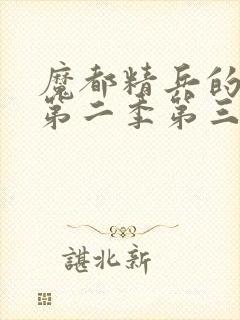 魔都精兵的
第二季第三
谌北新